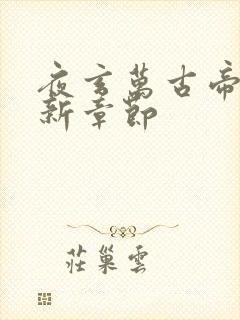 夜玄萬古帝
新章節
莊巢雲